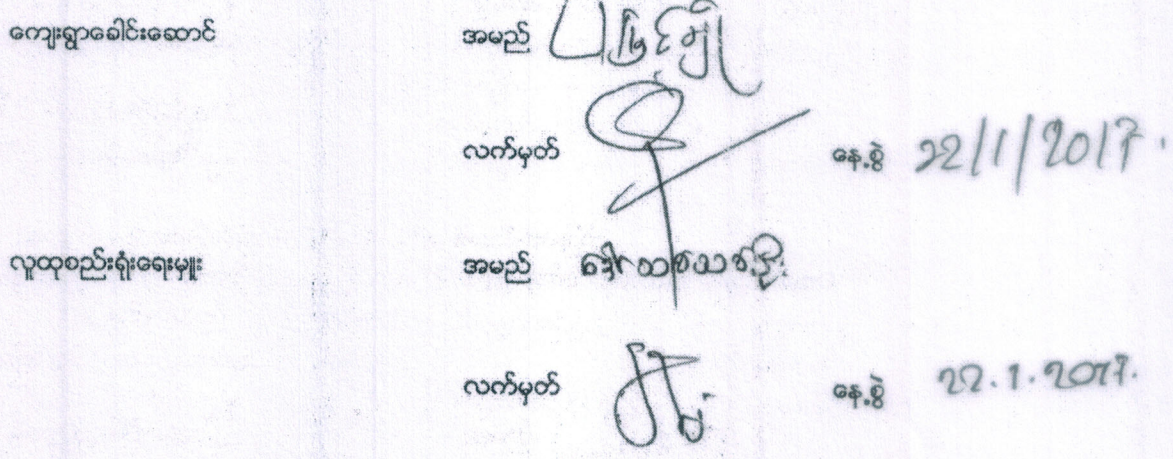 ကျေးရွာခေါင်းဆောင် အမည်
လက်မှတ် နေ့စွဲ 22/1/2017
လူထုစည်းရုံးရေးမှူး အမည် ဒေါ်
လက်မှတ် နေ့စွဲ 22.1.2017.